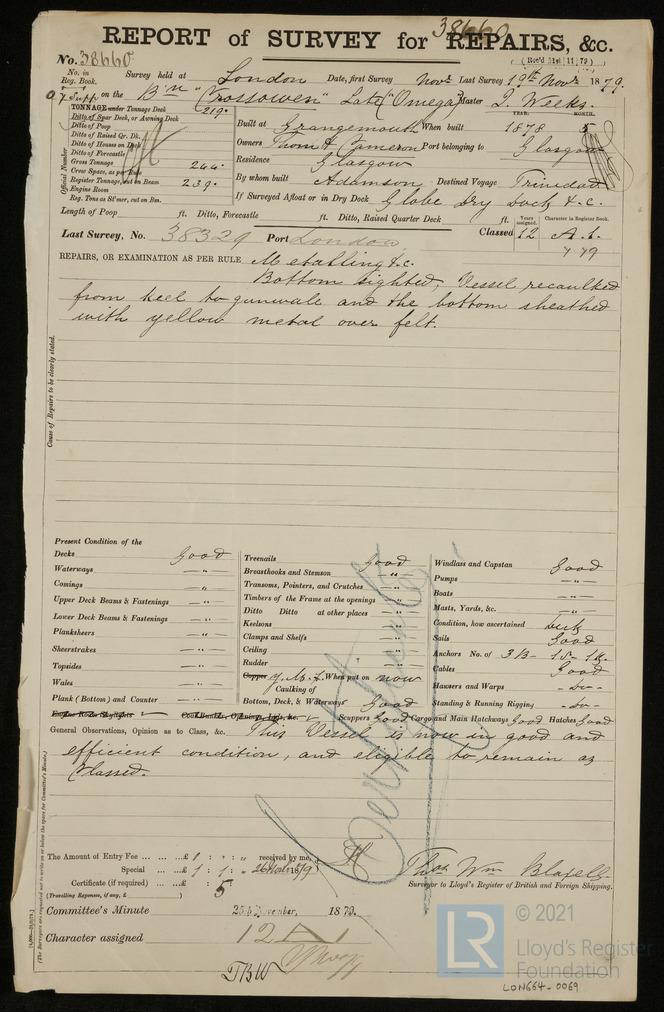 38660
REPORT of SURVEY for REPAIRS, &c.
No. 38660
(Rec'd 21st 11 79)
No. in Reg. Book.
Survey held at London Date, first Survey Novr Last Survey 19th Novr 1879.
97 Supp on the Bn "Crossowen" Late ("Omega") Master J. Weeks.
TONNAGE under Tonnage Deck 219.
Ditto of Spar Deck, or Awning Deck
Ditto of Poop
Ditto of Raised Qr. Dk.
Ditto of Houses on Deck
Ditto of Forecastle
Gross Tonnage 244.
Crew Space, as per Rule
Register Tonnage, cut on Beam 239.
Engine Room
Reg. Tons as St'mer, cut on Bm.
Official Number
YEAR. MONTH.
Built at Grangemouth When built 1878 5
Owners Thom & Cameron Port belonging to Glasgow
Residence Glasgow
By whom built Adamson Destined Voyage Trinidad
If Surveyed Afloat or in Dry Dock Globe Dry Dock & c.
Length of Poop ft. Ditto, Forecastle ft. Ditto, Raised Quarter Deck ft.
Years assigned. Character in Register Book.
Last Survey, No. 38329 Port London Classed 12 A.1.
7.79
REPAIRS, OR EXAMINATION AS PER RULE Metalling &c.
Bottom sighted, Vessel recaulked
from keel to gunwale and the bottom sheathed
with yellow metal over felt.
Cause of Repairs to be clearly stated.
Present Condition of the
Decks Good
Waterways — " —
Comings — " —
Upper Deck Beams & Fastenings — " —
Lower Deck Beams & Fastenings — " —
Planksheers — " —
Sheerstrakes — " —
Topsides — " —
Wales — " —
Plank (Bottom) and Counter — " —
Treenails Good
Breasthooks and Stemson — " —
Transoms, Pointers, and Crutches — " —
Timbers of the Frame at the openings — " —
Ditto Ditto at other places — " —
Keelsons — " —
Clamps and Shelfs — " —
Ceiling — " —
Rudder — " —
Copper Y.M.f. When put on now
Caulking of
Bottom, Deck, & Waterways Good
Windlass and Capstan Good
Pumps — " —
Boats — " —
Masts, Yards, &c. — " —
Condition, how ascertained
Sails Good
Anchors No. of 3B - 1S - 1K.
Cables Good
Hawsers and Warps - Do -
Standing & Running Rigging - Do -
Engine Room Skylights Coal Bunker, Openings, Lids, &c. Scuppers Good Cargo and Main Hatchways Good Hatches Good
General Observations, Opinion as to Class, &c. This Vessel is now in good and
efficient condition, and eligible to remain as
Classed.
The Amount of Entry Fee ... ... ... £ 1 : : " received by me,
Special ... ... £ 1 : 1 : " 26 Novr 1879
Certificate (if required) ... £ : 5
(Travelling Expenses, if any, £ )
Thos. Wm. Blasells
Surveyor to Lloyd's Register of British and Foreign Shipping.
Committee's Minute 25th November, 1879.
Character assigned 12 A 1
TBW
(The Surveyors are requested not to write on or below the space for Committee's Minute.)
© 2021
LR
Lloyd's Register
Foundation
LON664-0069